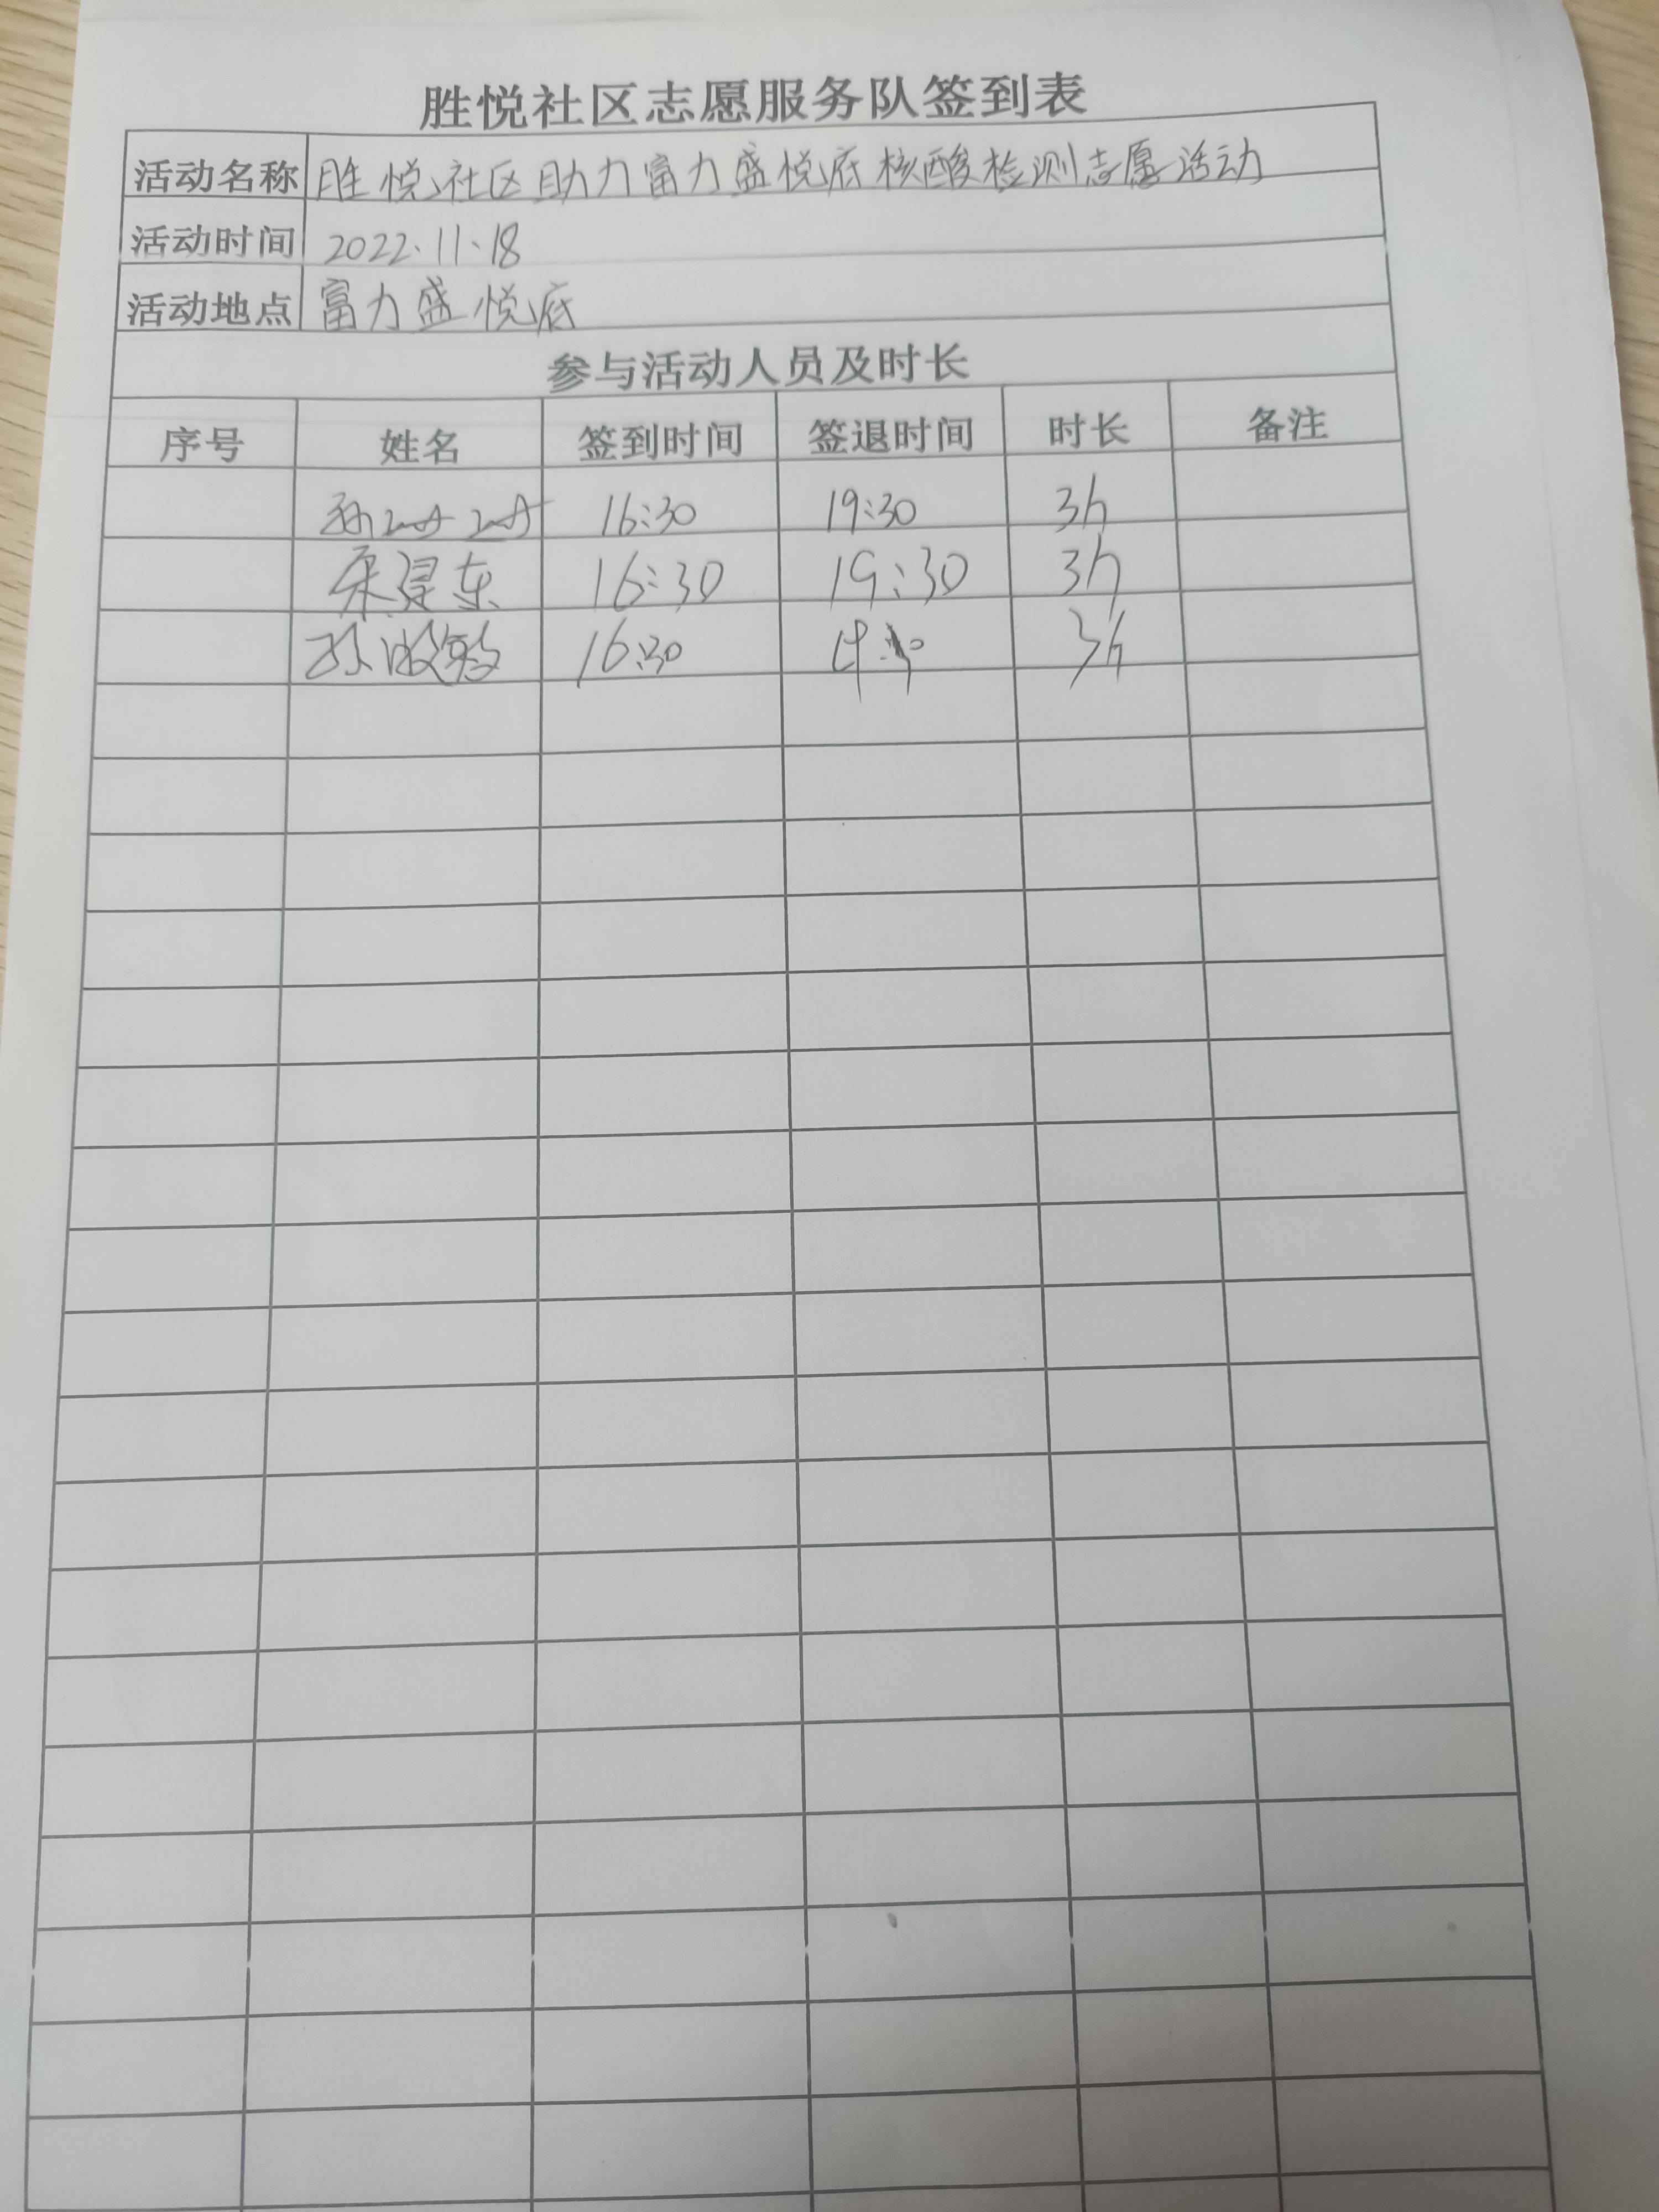 胜悦社区志愿服务队签到表
活动名称 胜悦社区助力富力盛悦府核酸检测志愿活动
活动时间 2022.11.18
活动地点 富力盛悦府
参与活动人员及时长
序号 姓名 签到时间 签退时间 时长 备注
16:30 19:30 3h
16:30 19:30 3h
16:30 3h